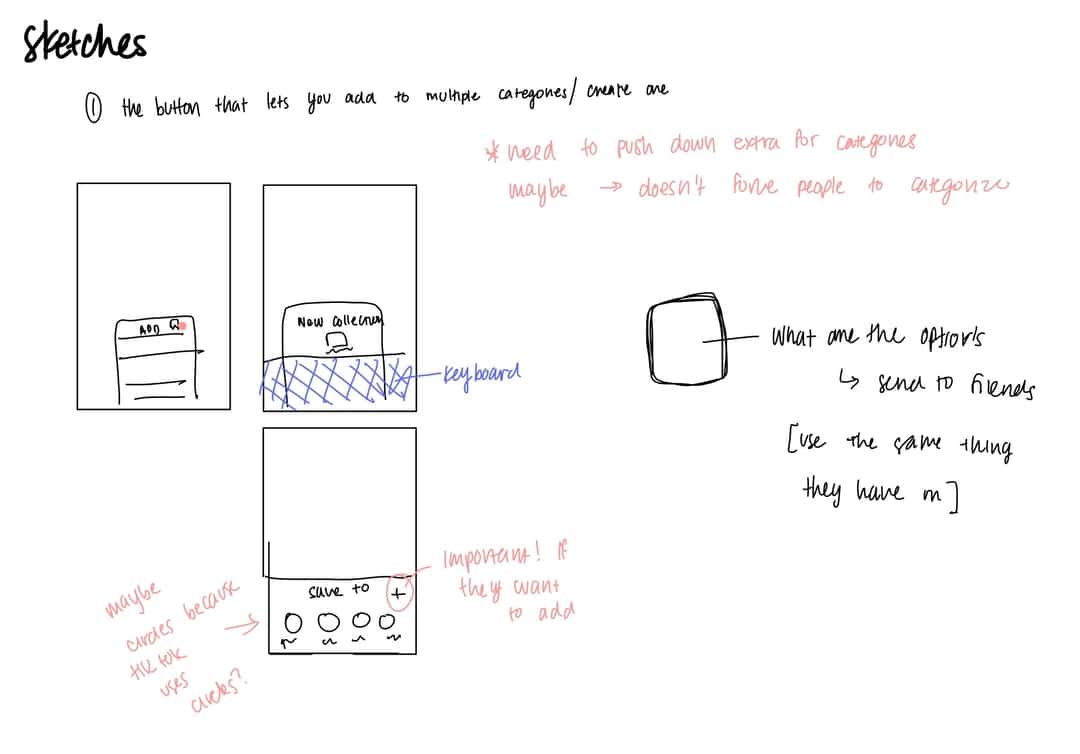 Sketches
① the button that lets you add to multiple categories/ create one
* need to push down extra for categories
maybe → doesn't force people to categorize
ADD
New Collection
keyboard
what are the options
↳ send to friends
[use the same thing
they have on]
save to +
Important! If
they want
to add
maybe
circles because
tiktok
uses
circles?